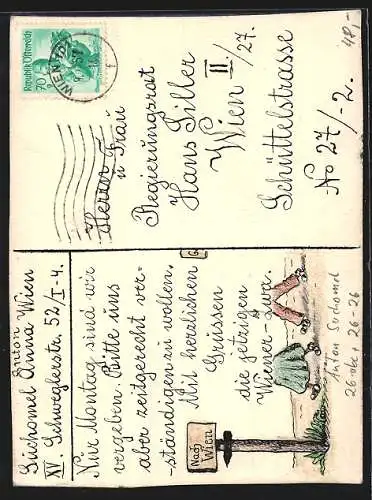 Anton
Suchomel Anna Wien
XV. Schweglerstr. 52/I-4.
Nur Montag sind wir
vergeben. Bitte uns
aber zeitgerecht ver-
ständigen zu wollen.
Mit herzlichen
Grüssen
die jetzigen
Wiener-
Nach
Wien
Anton Suchomel
26-26
Republik Österreich
70
WIEN
Herrn
u Frau
Regierungsrat
Hans Tiller
Wien II/27.
Schüttelstrasse
No 27/-2.
48,-